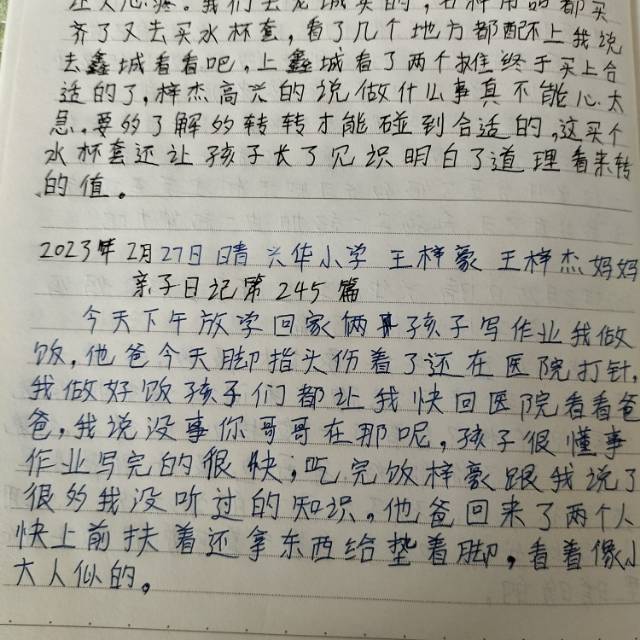 让人心疼。我们去龙城买的，各种用品都买
齐了又去买水杯套，看了几个地方都配不上我说
去鑫城看看吧，上鑫城看了两个摊终于买上合
适的了，梓杰高兴的说做什么事真不能心太
急。要多了解多转转才能碰到合适的，这买个
水杯套还让孩子长了见识明白了道理看来转
的值。
2023年2月27日晴 兴华小学 王梓豪 王梓杰妈妈
亲子日记第245篇
今天下午放学回家俩孩子写作业我做
饭，他爸今天脚指头伤着了还在医院打针，
我做好饭孩子们都让我快回医院看看爸
爸，我说没事你哥哥在那呢，孩子很懂事
作业写完的很快；吃完饭梓豪跟我说了
很多我没听过的知识。他爸回来了两个人
快上前扶着还拿东西给垫着脚，看着像小
大人似的。